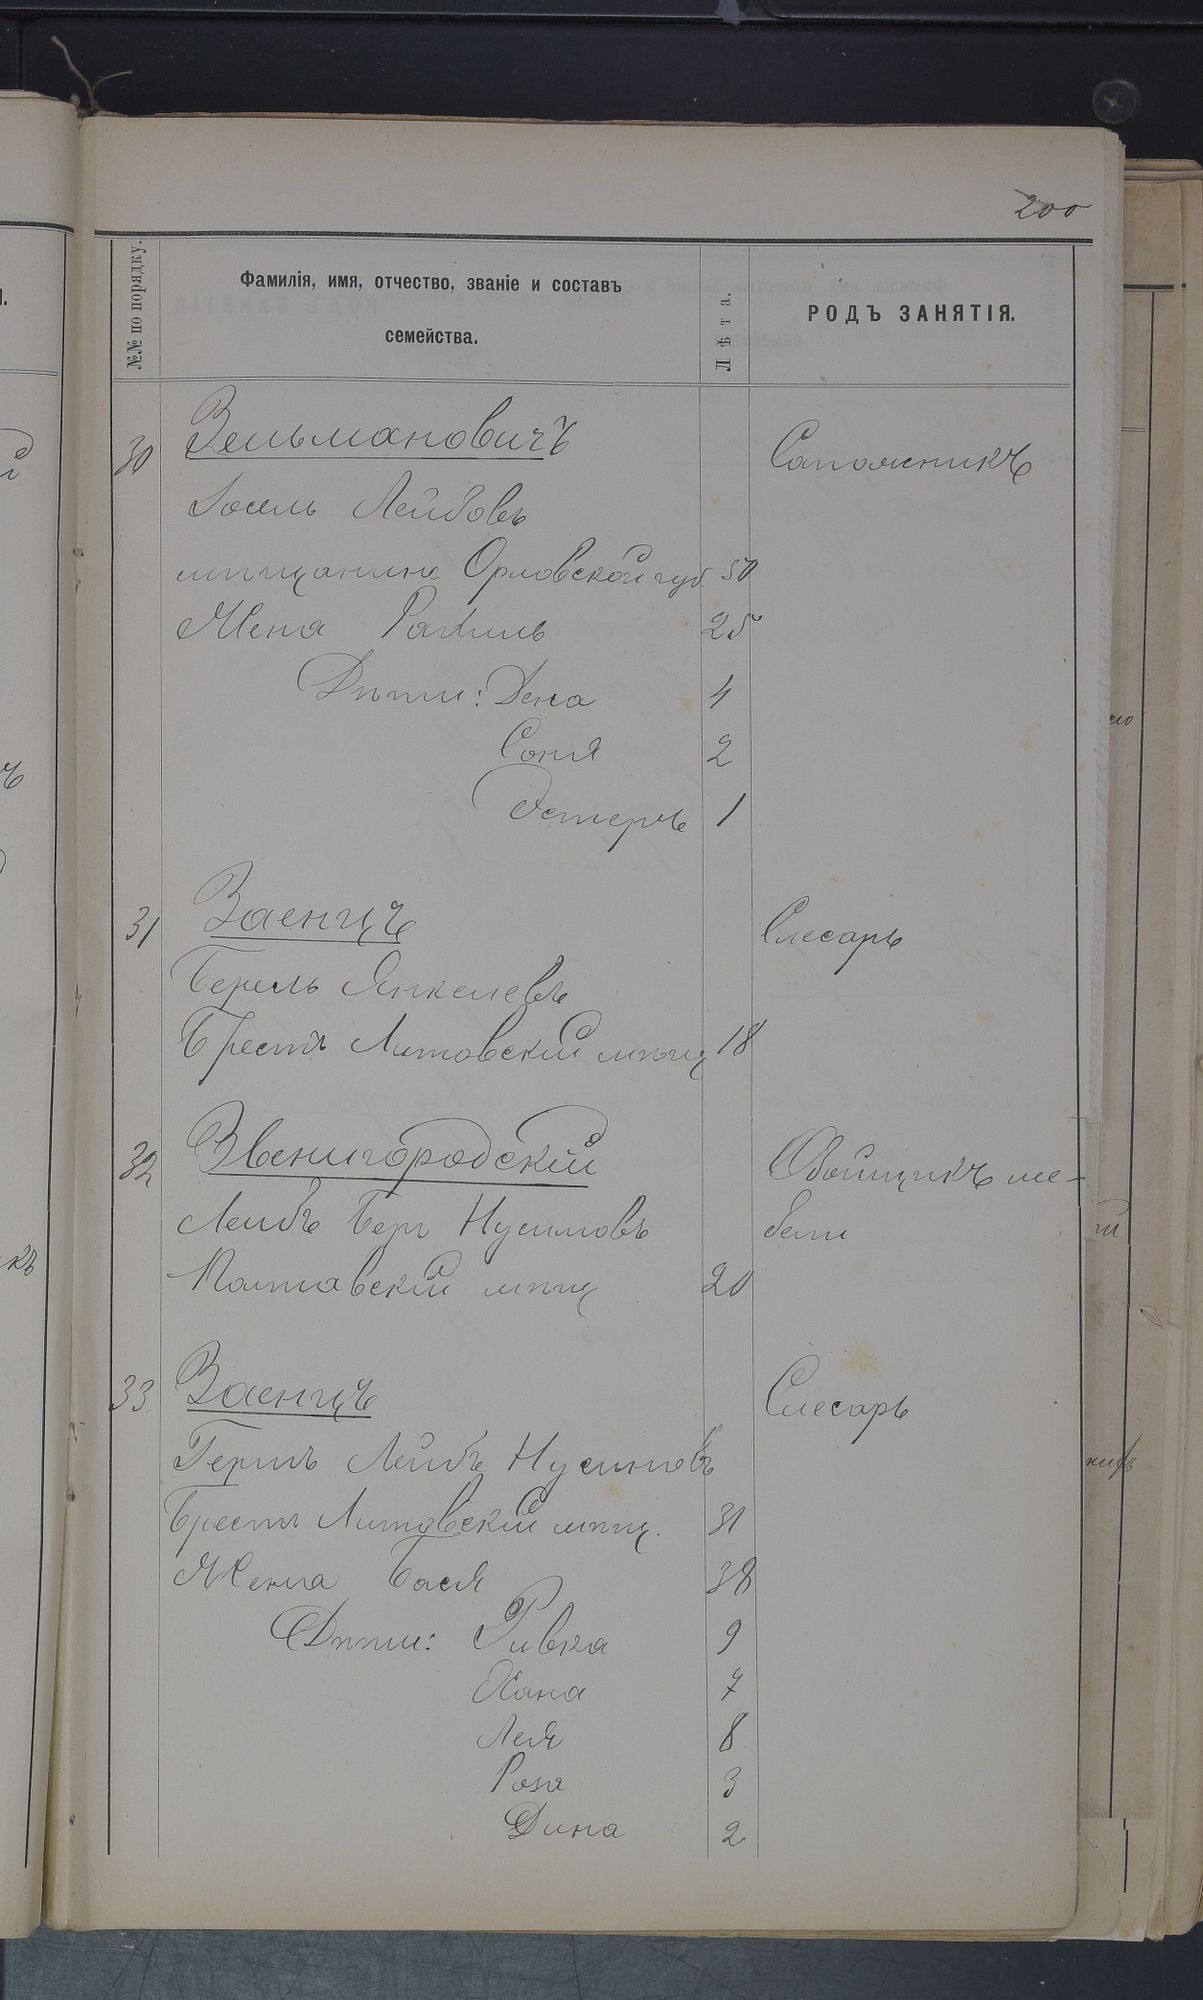 200
№№ по порядку.
Фамилія, имя, отчество, званіе и составъ
семейства.
Лѣта.
РОДЪ ЗАНЯТІЯ.
30 Зельмановичъ Сапожникъ
Іосель Лейбовъ
мѣщанинъ Орловской губ. 50
Жена Рахиль 25
Дѣти: Дена 4
Соня 2
Эстеръ 1
31 Заенцъ Слесарь
Берель Янкелевъ
Брестъ Литовскій мѣщ 18
32 Звенигородскій Обойщикъ ме-
Лейбъ Бер Нусимовъ бели
Полтавскій мѣщ 20
33 Заенцъ Слесарь
Гершъ Лейбъ Нусимовъ
Брестъ Литовскій мѣщ. 31
Жена Бася 38
Дѣти: Ривка 9
Хана 7
Лея 8
Роза 3
Дина 2